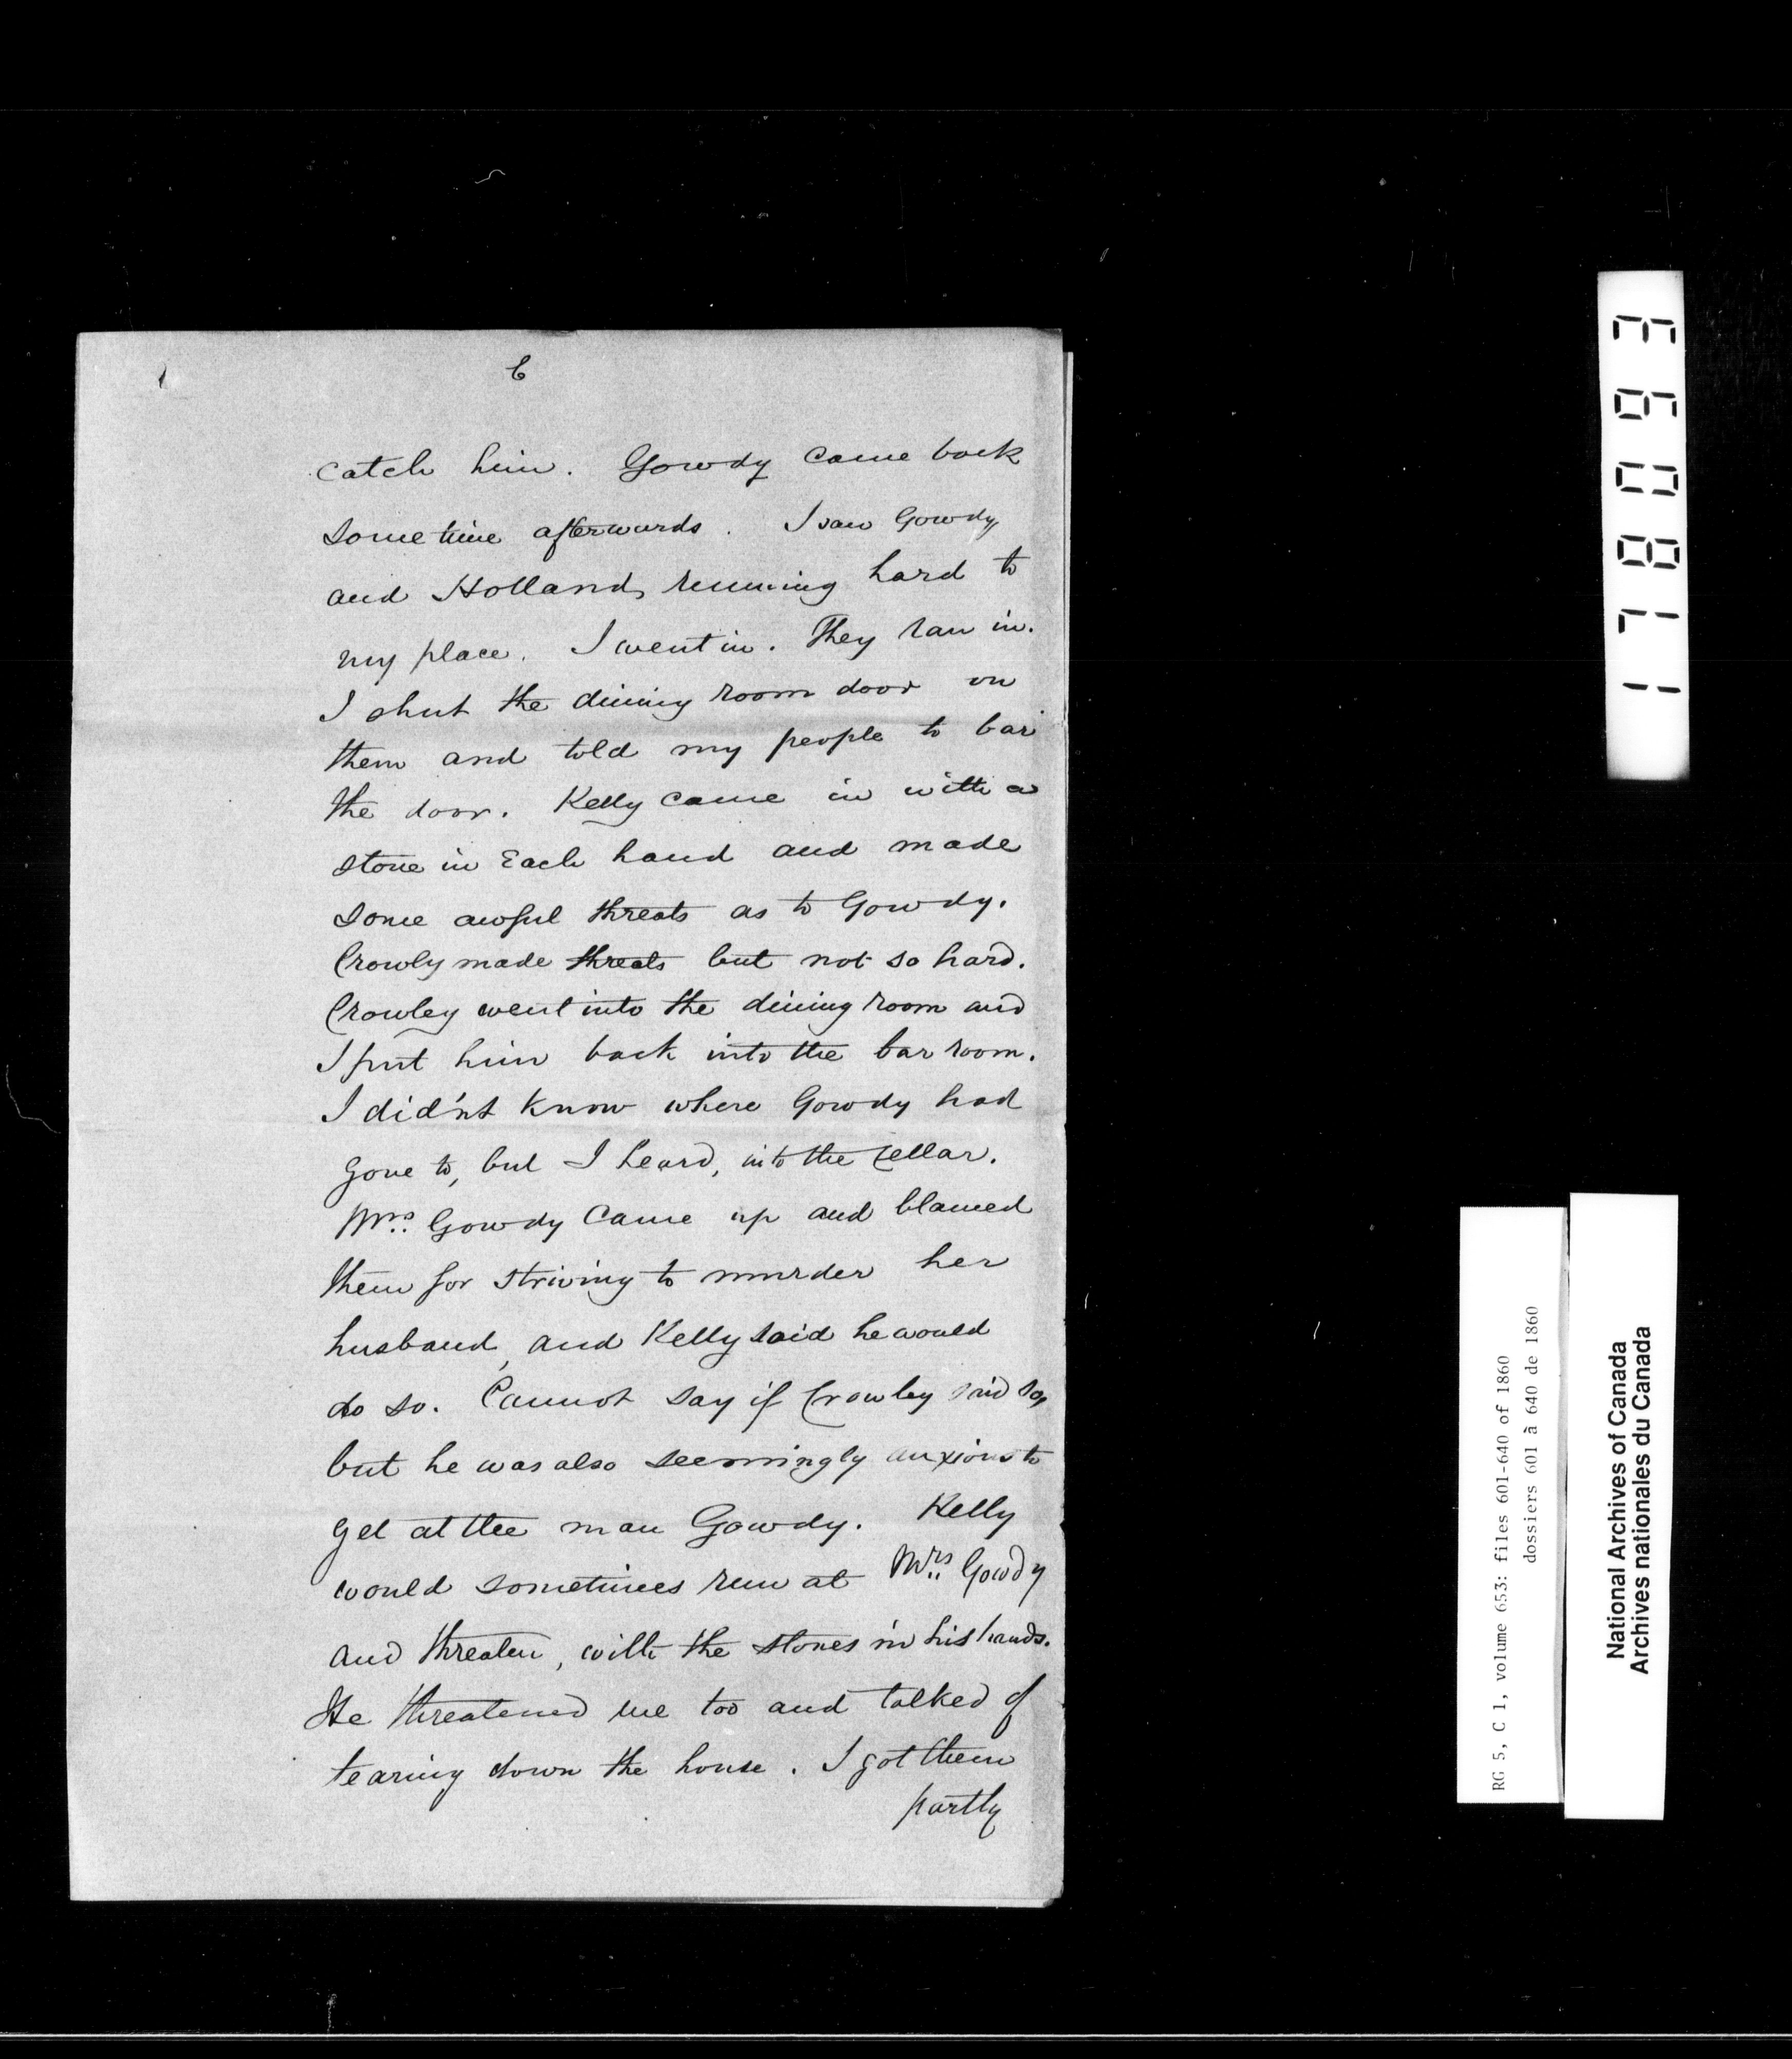 6
catch him. Gowdy came back
sometime afterwards. I saw Gowdy
and Holland, running hard to
my place. I went in. They ran in.
I shut the dining room door on
them and told my people to bar
the door. Kelly came in with a
stone in Each hand and made
some awful threats as to Gowdy.
Crowly made threats but not so hard.
Crowley went into the dining room and
I put him back into the bar room.
I did'nt Know where Gowdy had
gone to, but I heard, into the Cellar.
Mrs. Gowdy Came up and blamed
them for striving to murder her
husband, and Kelly said he would
do so. Cannot say if Crowley said so,
but he was also seemingly anxious to
get at the man Gowdy. Kelly
would sometimes run at Mrs. Gowdy
and threaten, with the stones in his hands.
He threatened me too and talked of
tearing down the house. I got them
partly
178093
RG 5, C 1, volume 653: files 601-640 of 1860
dossiers 601 à 640 de 1860
National Archives of Canada
Archives nationales du Canada